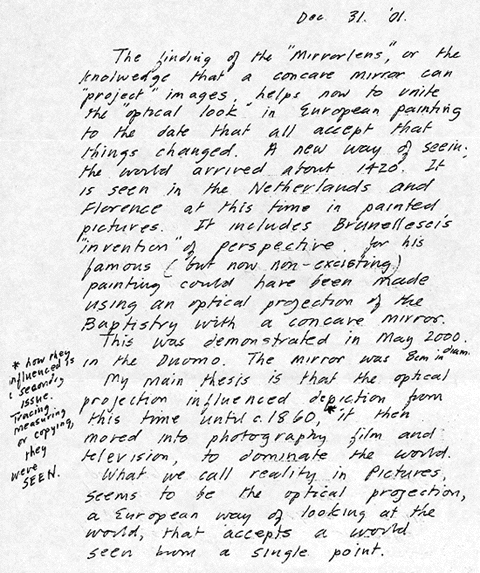 Dec. 31. '01.
The finding of the "Mirrorlens", or the
knolwedge that a concave mirror can
"project" images, helps now to unite
the "optical look" in European painting
to the date that all accept that
things changed. A new way of seein:
the world arrived about 1420. It
is seen in the Netherlands and
Florence at this time in painted
pictures. It includes Brunellesci's
"invention" of perspective. for his
famous ('but now non-excisting)
painting could have been made
using an optical projection of the
Baptistry with a concave mirror.
This was demonstrated in May 2000.
in the Duomo. The mirror was 8cm in diam.
My main thesis is that the optical
projection influenced depiction from
this time until c.1860,* it then
moved into photography film and
television, to dominate the world.
What we call reality in Pictures,
seems to be the optical projection,
a European way of looking at the
world, that accepts a world
seen from a single point.
* how they
influenced is
a secondry
issue.
Tracing,
measuring
or copying,
they
were
SEEN.